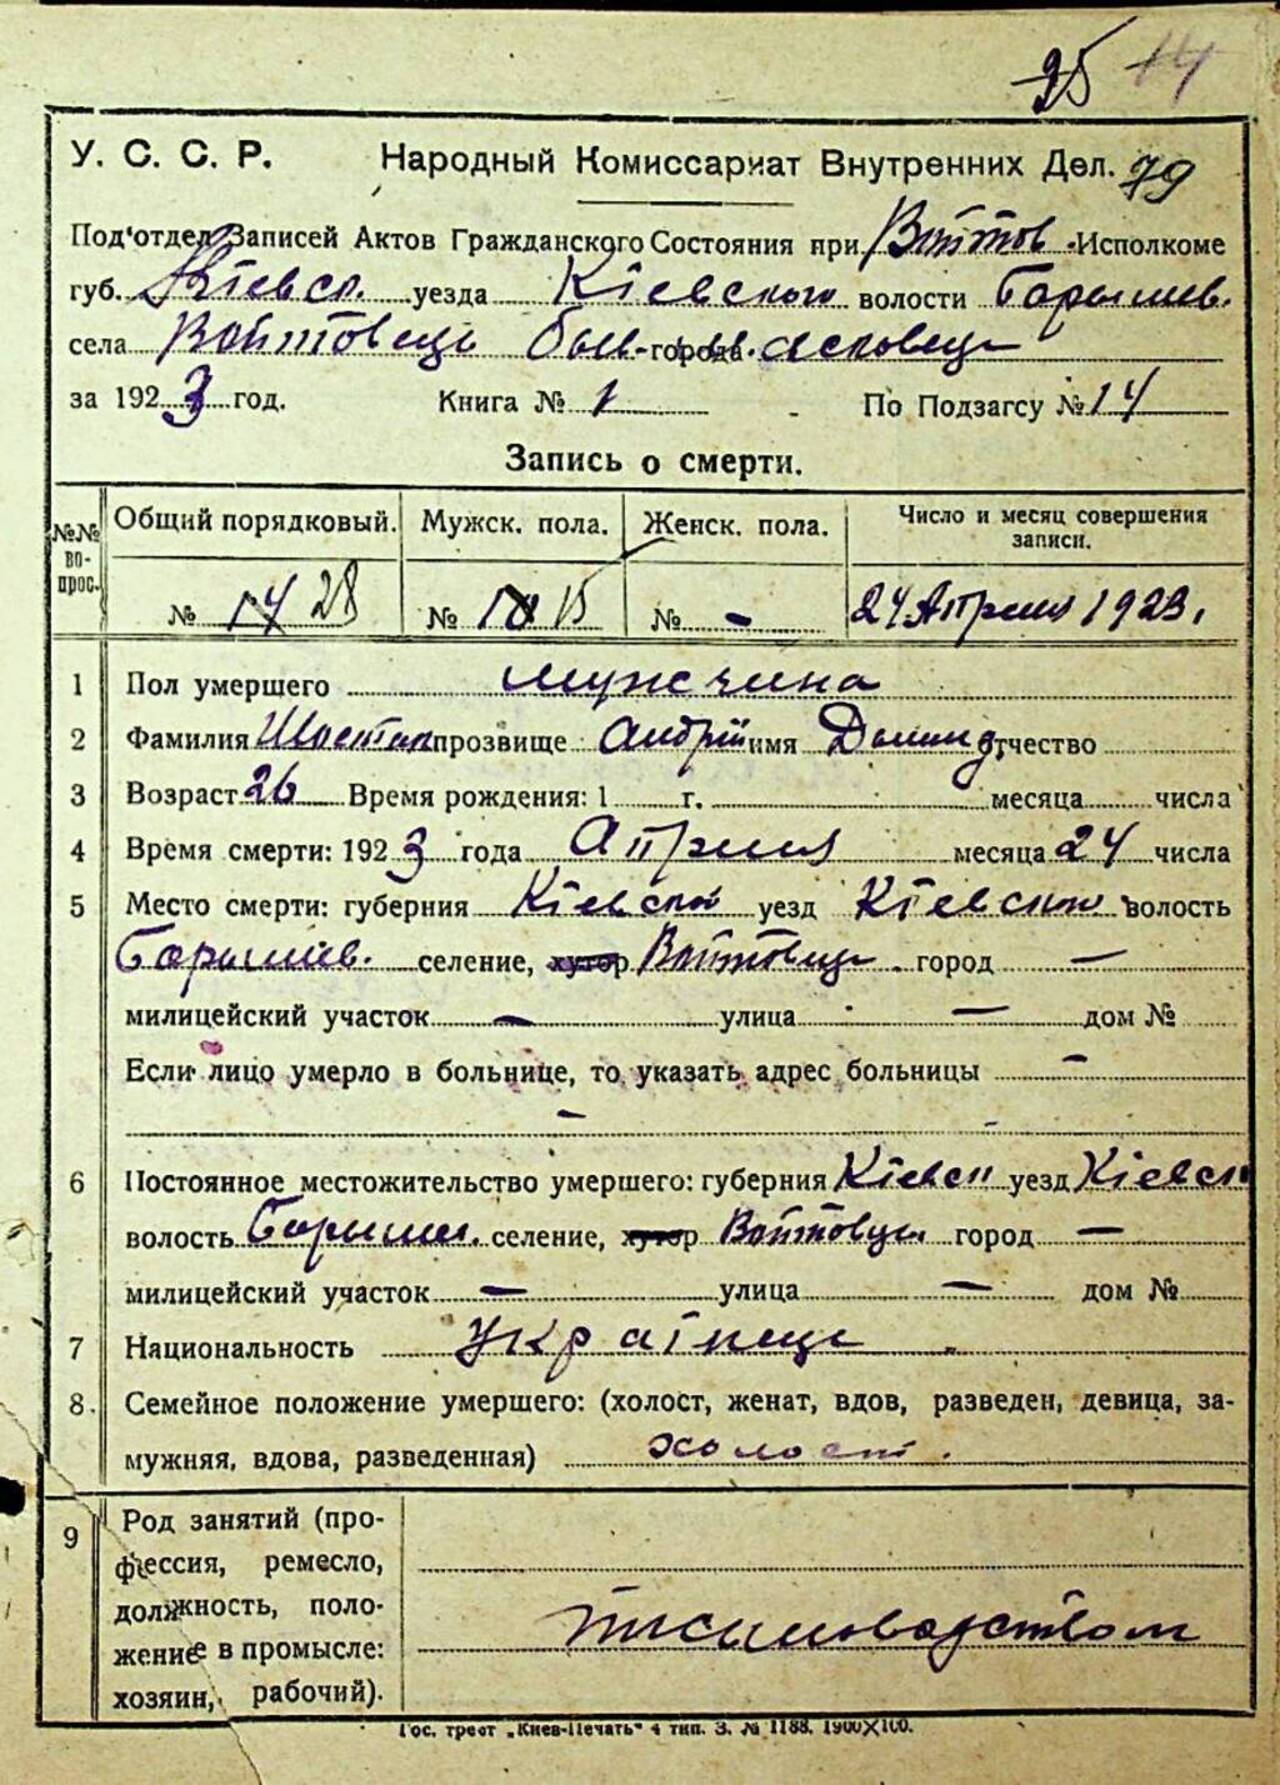 25 14
У. С. С. Р. Народный Комиссариат Внутренних Дел. 79
Под'отдел Записей Актов Гражданского Состояния при Войтов. Исполкоме
губ. Кіевск. уезда Кіевского волости Барышев.
села Войтовець города
за 1923 год. Книга № 1 По Подзагсу № 14
Запись о смерти.
№№ вопрос. Общий порядковый. Мужск. пола. Женск. пола. Число и месяц совершения записи.
№ 14 28 № 10 15 № - 24 Апреля 1923.
1 Пол умершего мужчина
2 Фамилия Шостак прозвище Андрій имя Демид отчество
3 Возраст 26 Время рождения: 1 г. месяца числа
4 Время смерти: 1923 года Апреля месяца 24 числа
5 Место смерти: губерния Кіевской уезд Кіевского волость
Барышев. селение, хутор Войтовцы город —
милицейский участок — улица — дом №
Если лицо умерло в больнице, то указать адрес больницы —
—
6 Постоянное местожительство умершего: губерния Кіевск уезд Кіевск
волость Барышев. селение, хутор Войтовцы город —
милицейский участок — улица — дом №
7 Национальность Українець
8. Семейное положение умершего: (холост, женат, вдов, разведен, девица, за-
мужняя, вдова, разведенная) холост.
9 Род занятий (про-
фессия, ремесло,
должность, поло-
жение в промысле:
хозяин, рабочий).
письмоводством
Гос. трест „Киев-Печать“ 4 тип. З. № 1188. 1900X100.